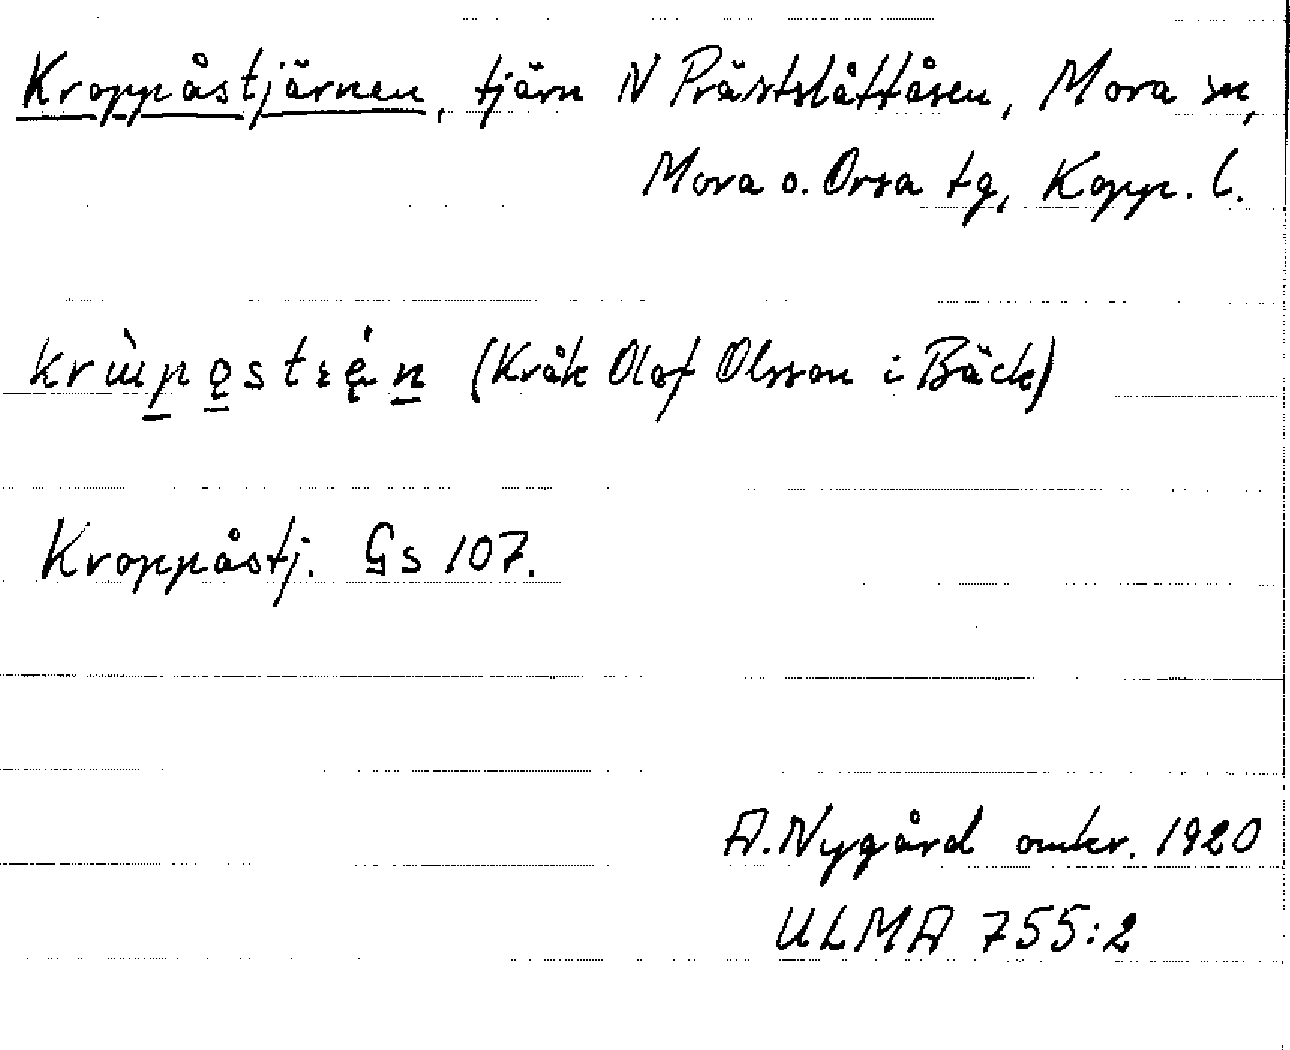 Kroppåstjärnen, tjärn N Prästslåttåsen, Mora sn,
Mora o. Orsa tg, Kopp. l.
(Kråk Olof Olsson i Bäck)
Kroppåstj. Gs 107.
A. Nygård omkr. 1920
ULMA 755:2